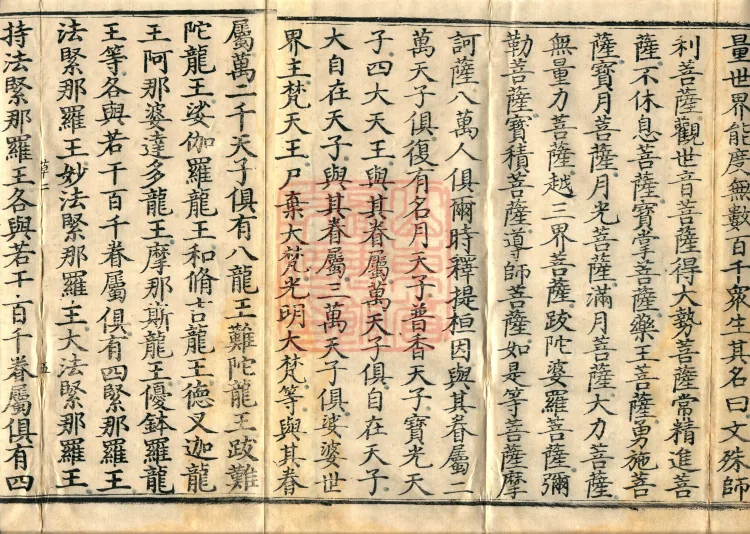 量世界能度無數百千衆生其名曰文殊師
利菩薩觀世音菩薩得大勢菩薩常精進菩
薩不休息菩薩寶掌菩薩藥王菩薩勇施菩
薩寶月菩薩月光菩薩滿月菩薩大力菩薩
無量力菩薩越三界菩薩跋陀婆羅菩薩彌
勒菩薩寶積菩薩導師菩薩如是等菩薩摩
訶薩八萬人俱爾時釋提桓因與其眷屬二
萬天子俱復有名月天子普香天子寶光天
子四大天王與其眷屬萬天子俱自在天子
大自在天子與其眷屬三萬天子俱娑婆世
界主梵天王尸棄大梵光明大梵等與其眷
屬萬二千天子俱有八龍王難陀龍王跋難
陀龍王娑伽羅龍王和脩吉龍王德叉迦龍
王阿那婆達多龍王摩那斯龍王優鉢羅龍
王等各與若干百千眷屬俱有四緊那羅王
法緊那羅王妙法緊那羅王大法緊那羅王
草二
五
持法緊那羅王各與若干百千眷屬俱有四